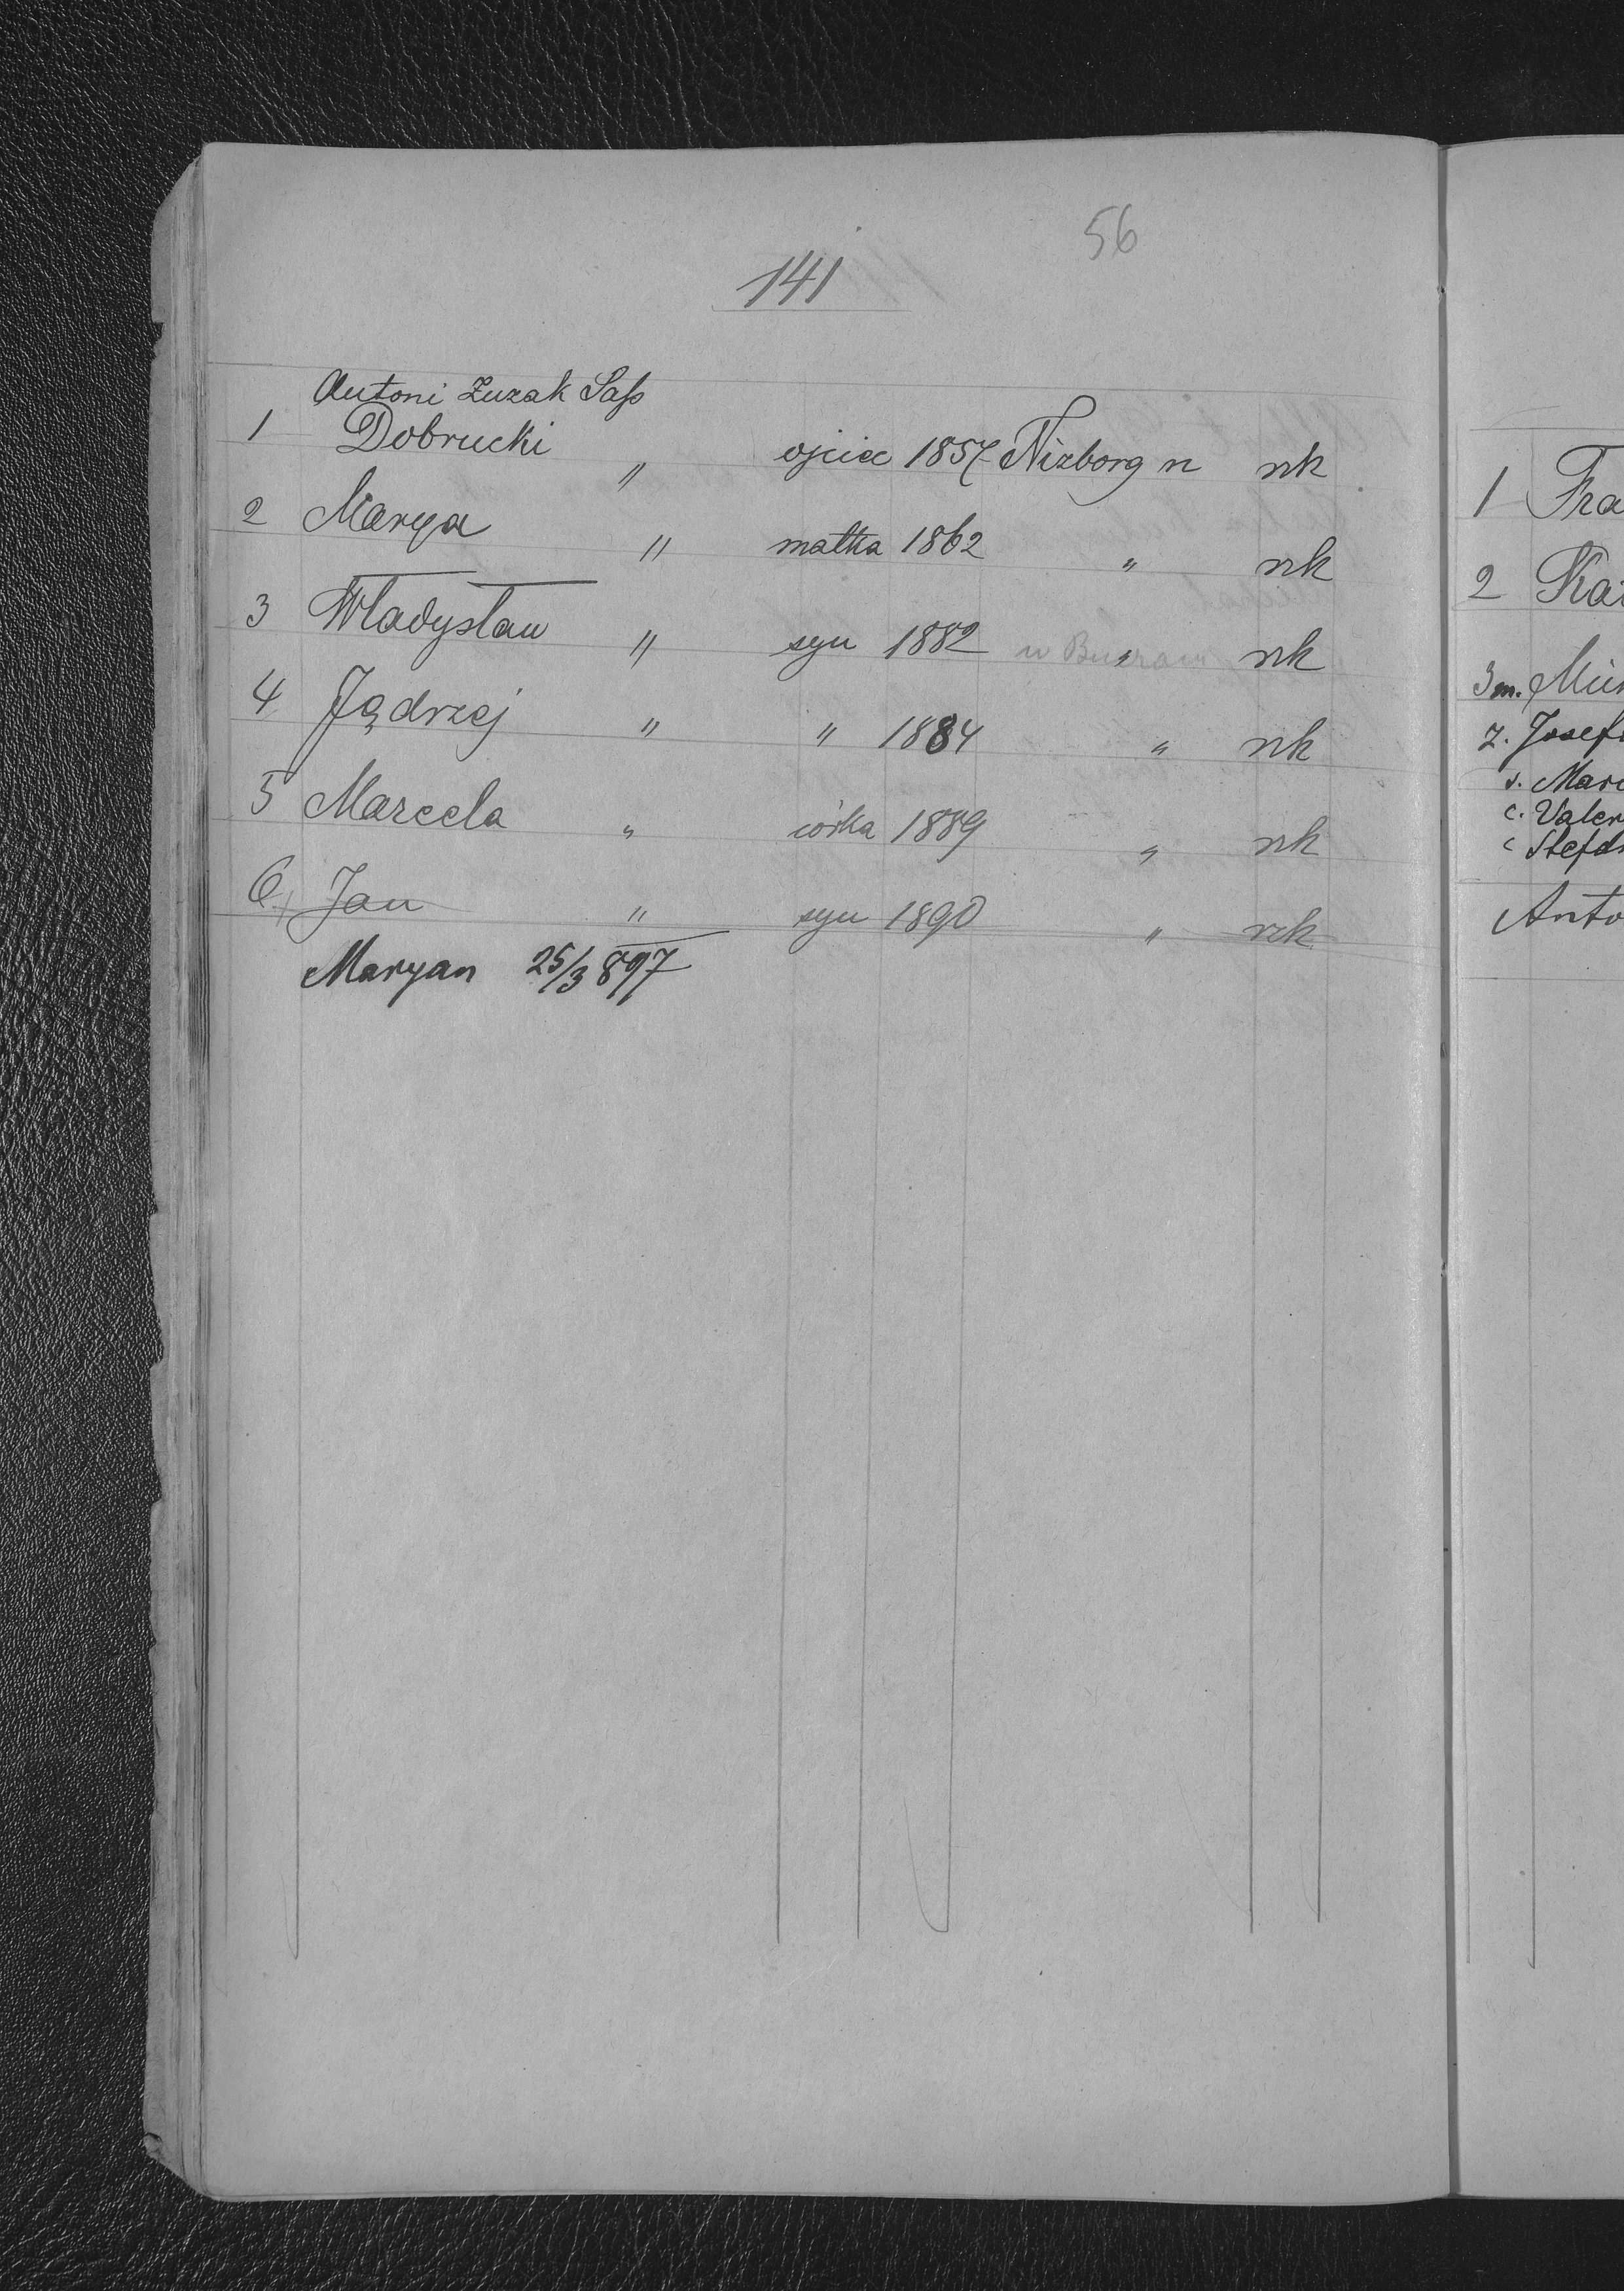 56
141
Antoni Zuzak Saſs
1 Dobrucki " ojciec 1857 Nizborg n rzk
2 Marya " matka 1862 " rzk
3 Władysław " syn 1882 " rzk
4 Jędrzej " " 1884 " rzk
5 Marcela " córka 1889 " rzk
6 Jan " syn 1890 " rzk
Maryan 25/3 897
1 Fra
2 Ka
3 m.
ż. Josef
s. Mar
c. Valer
c Stef
Anto